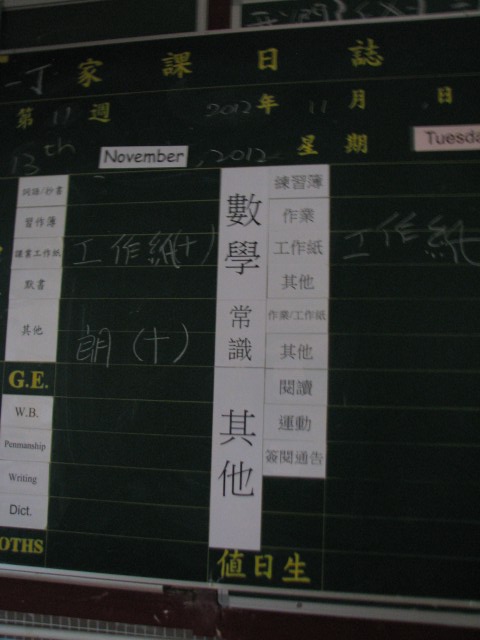 一丁 家課日誌
第 11 週 2012 年 11 月 日
13th November, 2012 星期 Tuesda
詞語/抄書
習作簿
讀書工作紙 工作紙(十)
默書
其他 朗(十)
G.E.
W.B.
Penmanship
Writing
Dict.
OTHS
數學
練習簿
作業
工作紙 工作紙
其他
常識
作業/工作紙
其他
其他
閱讀
運動
簽閱通告
值日生